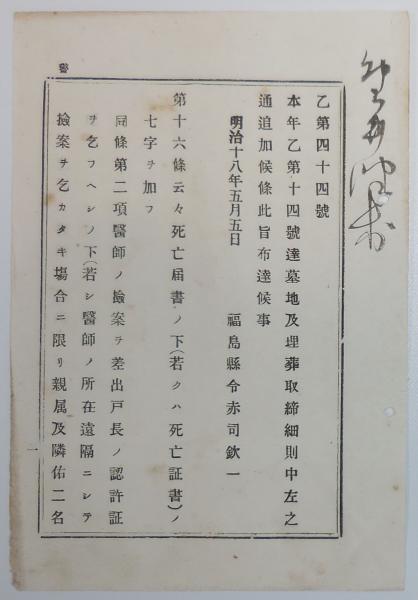 警
乙第四十四號
本年乙第十四號達墓地及埋葬取締細則中左之
通追加候條此旨布達候事
明治十八年五月五日　福島縣令赤司欽一
第十六條云々死亡届書ノ下(若クハ死亡証書)ノ
七字ヲ加フ
同條第二項醫師ノ撿案ヲ差出戸長ノ認許証
ヲ乞フヘシノ下(若シ醫師ノ所在遠隔ニシテ
撿案ヲ乞カタキ塲合ニ限リ親属及隣佑二名
一